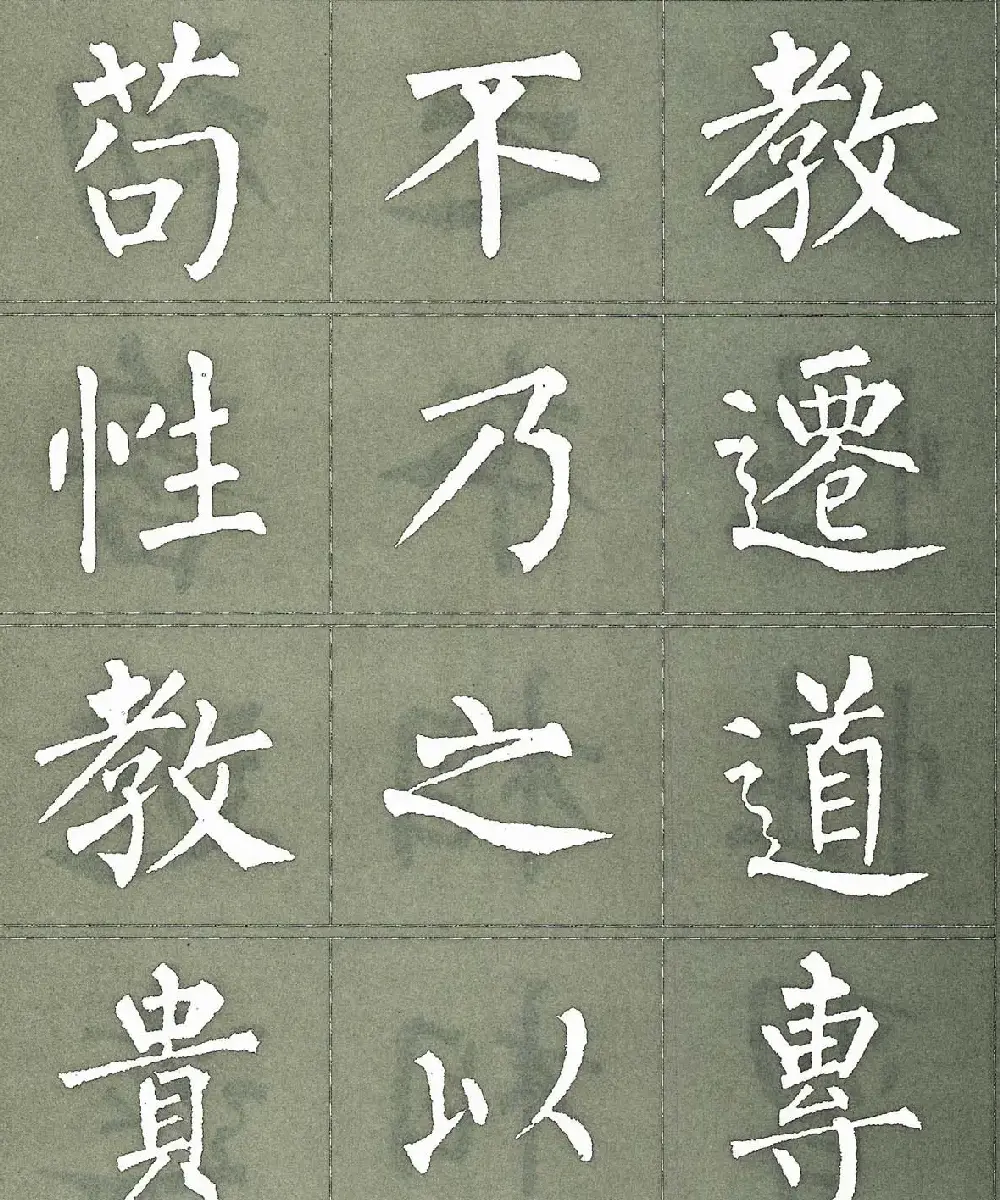 苟不教
性乃遷
教之道
貴以專